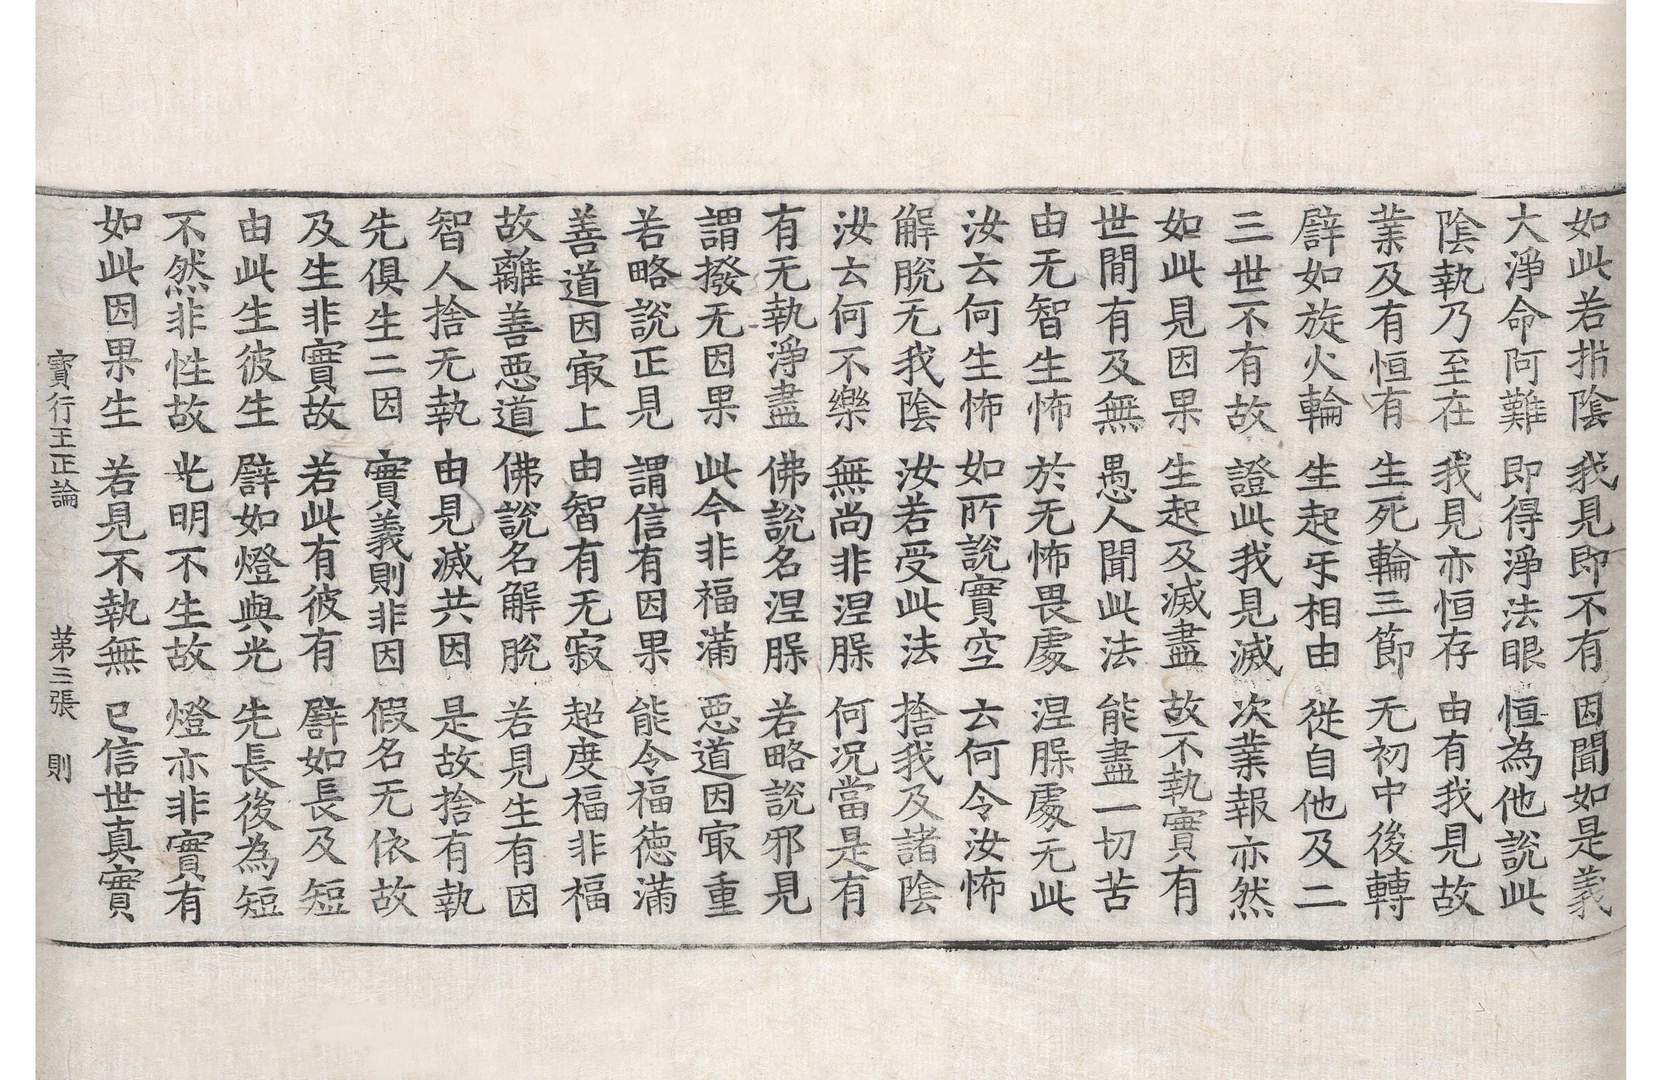 如此若指陰 我見即不有 因聞如是義
大淨命阿難 即得淨法眼 恒為他說此
陰執乃至在 我見亦恒存 由有我見故
業及有恒有 生死輪三節 无初中後轉
譬如旋火輪 生起乎相由 從自他及二
三世不有故 證此我見滅 次業報亦然
如此見因果 生起及滅盡 故不執實有
世間有及無 愚人聞此法 能盡一切苦
由无智生怖 於无怖畏處 涅槃處无此
汝云何生怖 如所說實空 云何令汝怖
解脫无我陰 汝若受此法 捨我及諸陰
汝云何不樂 無尚非涅槃 何況當是有
有无執淨盡 佛說名涅槃 若略說邪見
謂撥无因果 此今非福滿 惡道因㝡重
若略說正見 謂信有因果 能令福德滿
善道因㝡上 由智有无寂 超度福非福
故離善惡道 佛說名解脫 若見生有因
智人捨无執 由見滅共因 是故捨有執
先俱生二因 實義則非因 假名无依故
及生非實故 若此有彼有 譬如長及短
由此生彼生 譬如燈與光 先長後為短
不然非性故 光明不生故 燈亦非實有
如此因果生 若見不執無 已信世真實
寶行王正論 第三張 則